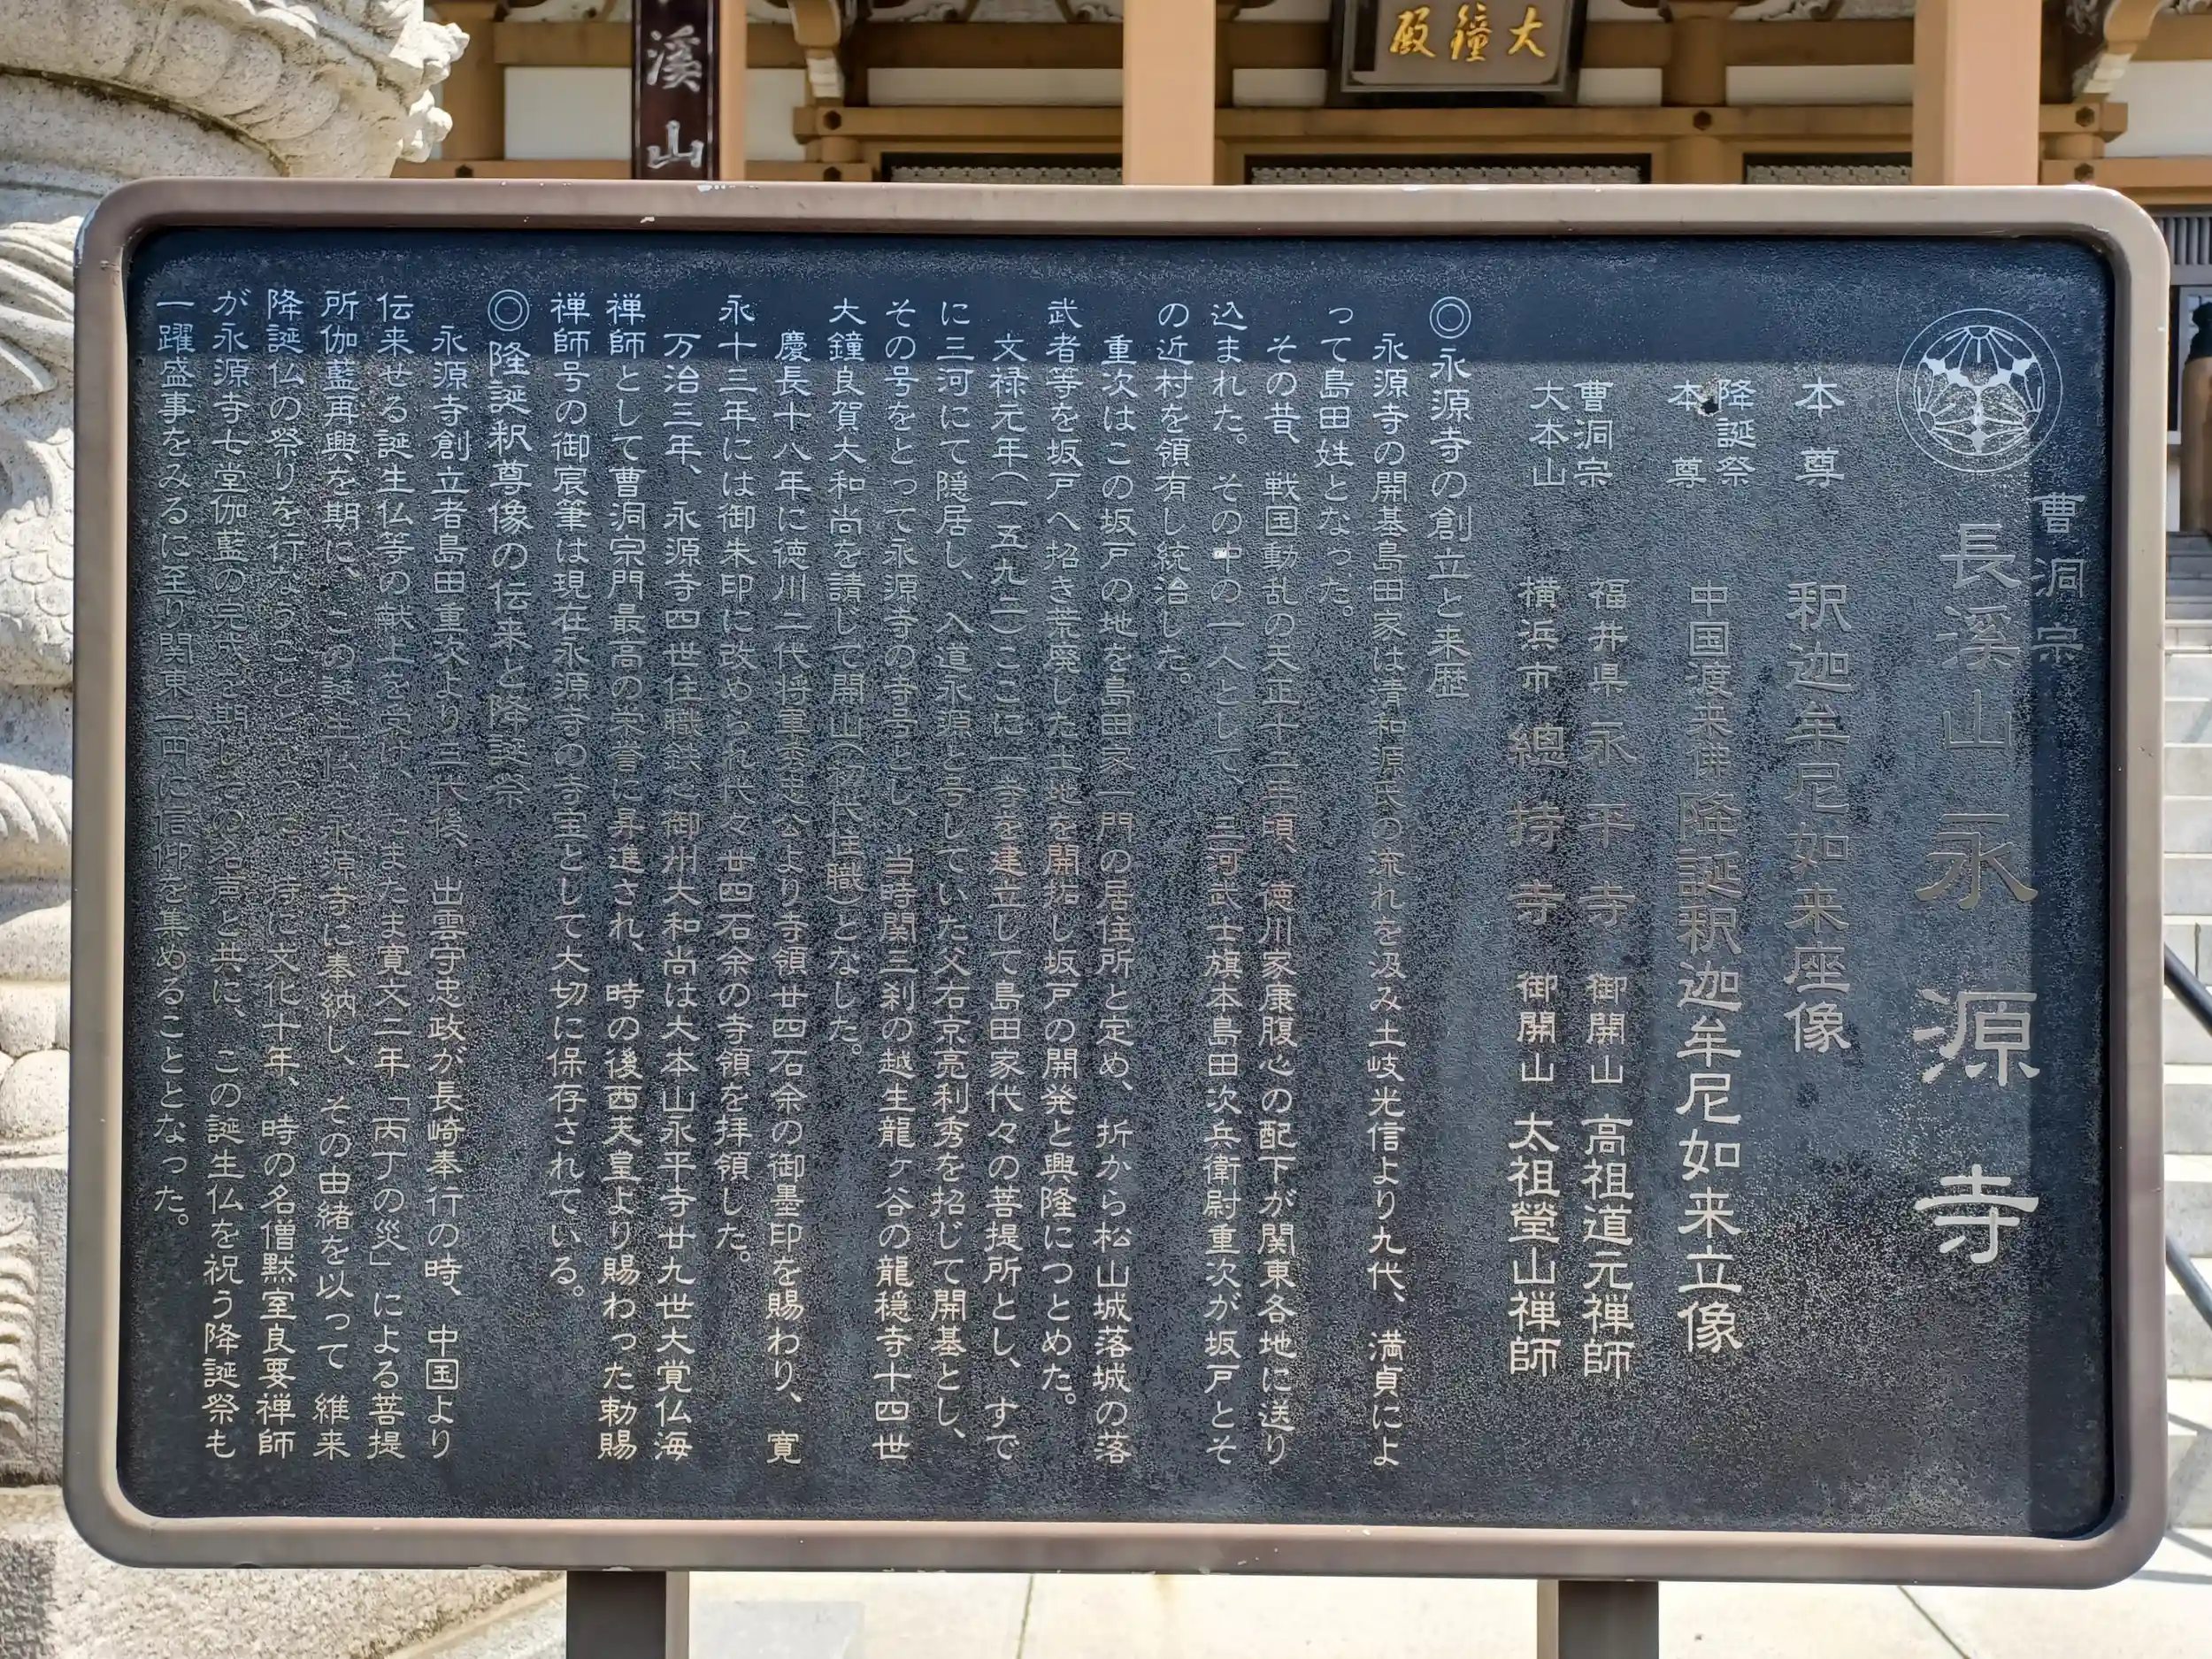 大鐘殿
溪山
曹洞宗
長溪山 永源寺
本尊 釈迦牟尼如来座像
降誕祭
本尊 中国渡来佛 降誕釈迦牟尼如来立像
曹洞宗 福井県 永平寺 御開山 高祖道元禅師
大本山 横浜市 總持寺 御開山 太祖瑩山禅師
◎永源寺の創立と来歴
永源寺の開基島田家は清和源氏の流れを汲み土岐光信より九代、満貞によ
って島田姓となった。
その昔、戦国動乱の天正十二年頃、徳川家康腹心の配下が関東各地に送り
込まれた。その中の一人として、三河武士旗本島田次兵衛尉重次が坂戸とそ
の近村を領有し統治した。
重次はこの坂戸の地を島田家一門の居住所と定め、折から松山城落城の落
武者等を坂戸へ招き荒廃した土地を開拓し坂戸の開発と興隆につとめた。
文禄元年(一五九二)ここに一寺を建立して島田家代々の菩提所とし、すで
に三河にて隠居し、入道永源と号していた父右京亮利秀を招じて開基とし、
その号をとって永源寺の寺号とし、当時関三刹の越生龍ヶ谷の龍穏寺十四世
大鐘良賀大和尚を請じて開山(初代住職)となした。
慶長十八年に徳川二代将軍秀忠公より寺領廿四石余の御墨印を賜わり、寛
永十三年には御朱印に改められ代々廿四石余の寺領を拝領した。
万治三年、永源寺四世住職鉄心御州大和尚は大本山永平寺廿九世大覚仏海
禅師として曹洞宗門最高の栄誉に昇進され、時の後西天皇より賜わった勅賜
禅師号の御宸筆は現在永源寺の寺宝として大切に保存されている。
◎降誕釈尊像の伝来と降誕祭
永源寺創立者島田重次より三代後、出雲守忠政が長崎奉行の時、中国より
伝来せる誕生仏等の献上を受け、たまたま寛文二年「丙丁の災」による菩提
所伽藍再興を期に、この誕生仏を永源寺に奉納し、その由緒を以って維来
降誕仏の祭りを行なうことになった。特に文化十年、時の名僧黙室良要禅師
が永源寺七堂伽藍の完成を期しその名声と共に、この誕生仏を祝う降誕祭も
一躍盛事をみるに至り関東一円に信仰を集めることとなった。